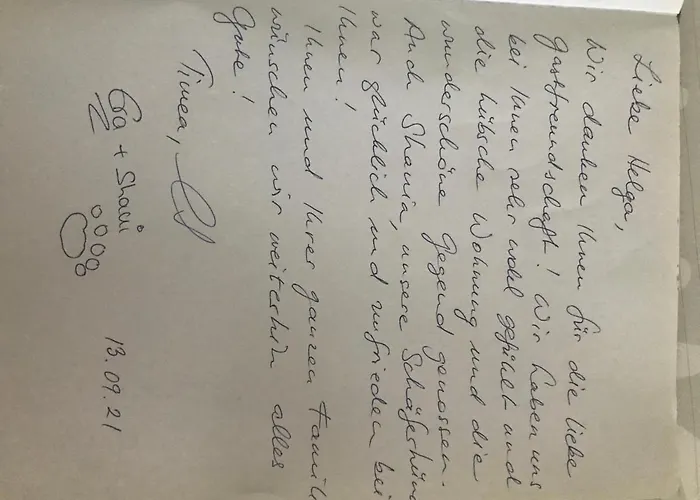 Liebe Helga,
Wir danken Ihnen für die liebe
Gastfreundschaft! Wir haben uns
bei Ihnen sehr wohl gefühlt und
die hübsche Wohnung und die
wunderschöne Gegend genossen.
Auch Shania, unsere Schäferhün
war glücklich und zufrieden bei
Ihnen!
Ihnen und Ihrer ganzen Famili
wünschen wir weiterhin alles
Gute!
Timea,
+ Shani
13.09.21